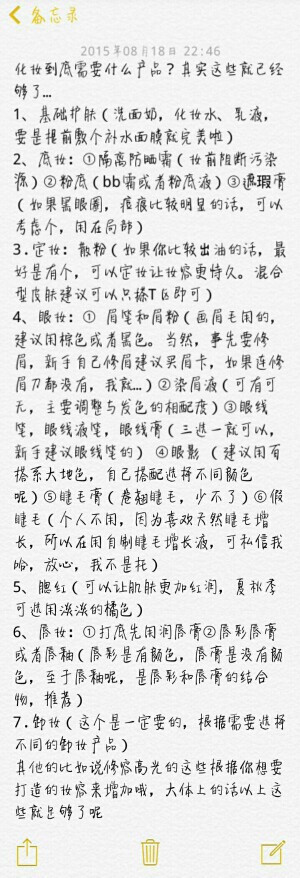 备忘录
2015年08月18日 22:46
化妆到底需要什么产品?其实这些就已经
够了...
1、基础护肤(洗面奶,化妆水、乳液,
要是提前敷个补水面膜就完美啦)
2、底妆:①隔离防晒霜(妆前阻断污染
源)②粉底(bb霜或者粉底液)③遮瑕膏
(如果黑眼圈,痘痕比较明显的话,可以
考虑个,用在局部)
3.定妆:散粉(如果你比较出油的话,最
好是有个,可以定妆让妆容更持久。混合
型皮肤建议可以只搽T区即可)
4、眼妆:① 眉笔和眉粉(画眉毛用的,
建议用棕色或者黑色。当然,事先要修
眉,新手自己修眉建议买眉卡,如果连修
眉刀都没有,我就...)②染眉液(可有可
无,主要调整与发色的相配度)③眼线
笔,眼线液笔,眼线膏(三选一就可以,
新手建议眼线笔的) ④眼影 (建议用百
搭系大地色,自己搭配选择不同颜色
呢)⑤睫毛膏(卷翘睫毛,少不了)⑥假
睫毛(个人不用,因为喜欢天然睫毛增
长,所以在用自制睫毛增长液,可私信我
哈,放心,我不是托)
5、腮红(可以让肌肤更加红润,夏秋季
可选用淡淡的橘色)
6、唇妆:①打底先用润唇膏②唇彩唇膏
或者唇釉(唇彩是有颜色,唇膏是没有颜
色,至于唇釉呢,是唇彩和唇膏的结合
物,推荐)
7.卸妆(这个是一定要的,根据需要选择
不同的卸妆产品)
其他的比如说修容高光的这些根据你想要
打造的妆容来增加哦,大体上的话以上这
些就足够了呢